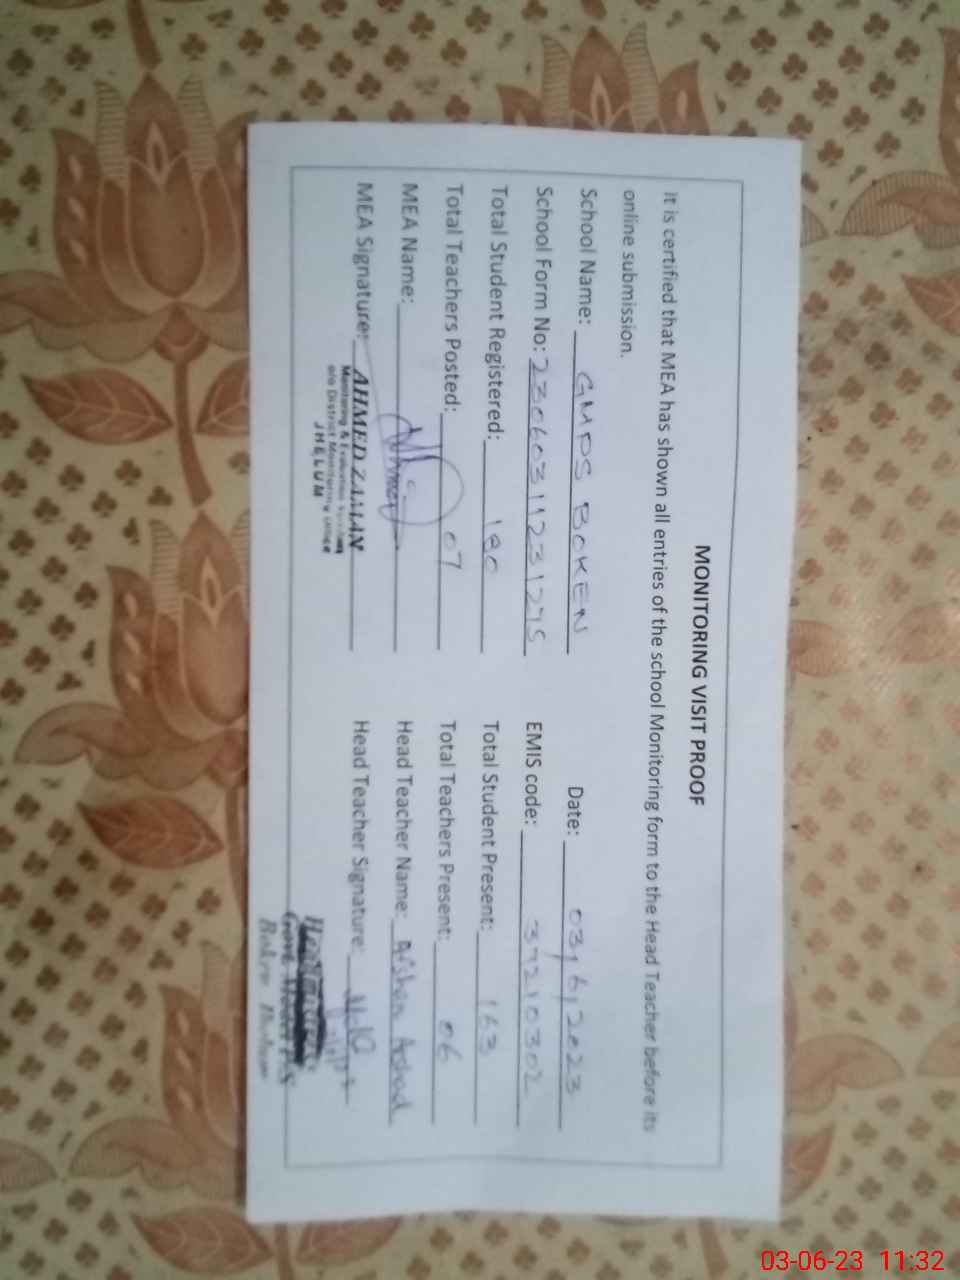 MONITORING VISIT PROOF
It is certified that MEA has shown all entries of the school Monitoring form to the Head Teacher before its
online submission.
School Name: GMPS BOKEN Date: 03/6/2023
School Form No: EMIS code: 37210302
Total Student Registered: 180 Total Student Present: 163
Total Teachers Posted: 07 Total Teachers Present: 06
MEA Name: Ahmed Head Teacher Name: Afshan Arshad
MEA Signature: Head Teacher Signature:
AHMED ZAMAN
Monitoring & Evaluation
o/o District Monitoring Officer
JHELUM
03-06-23 11:32